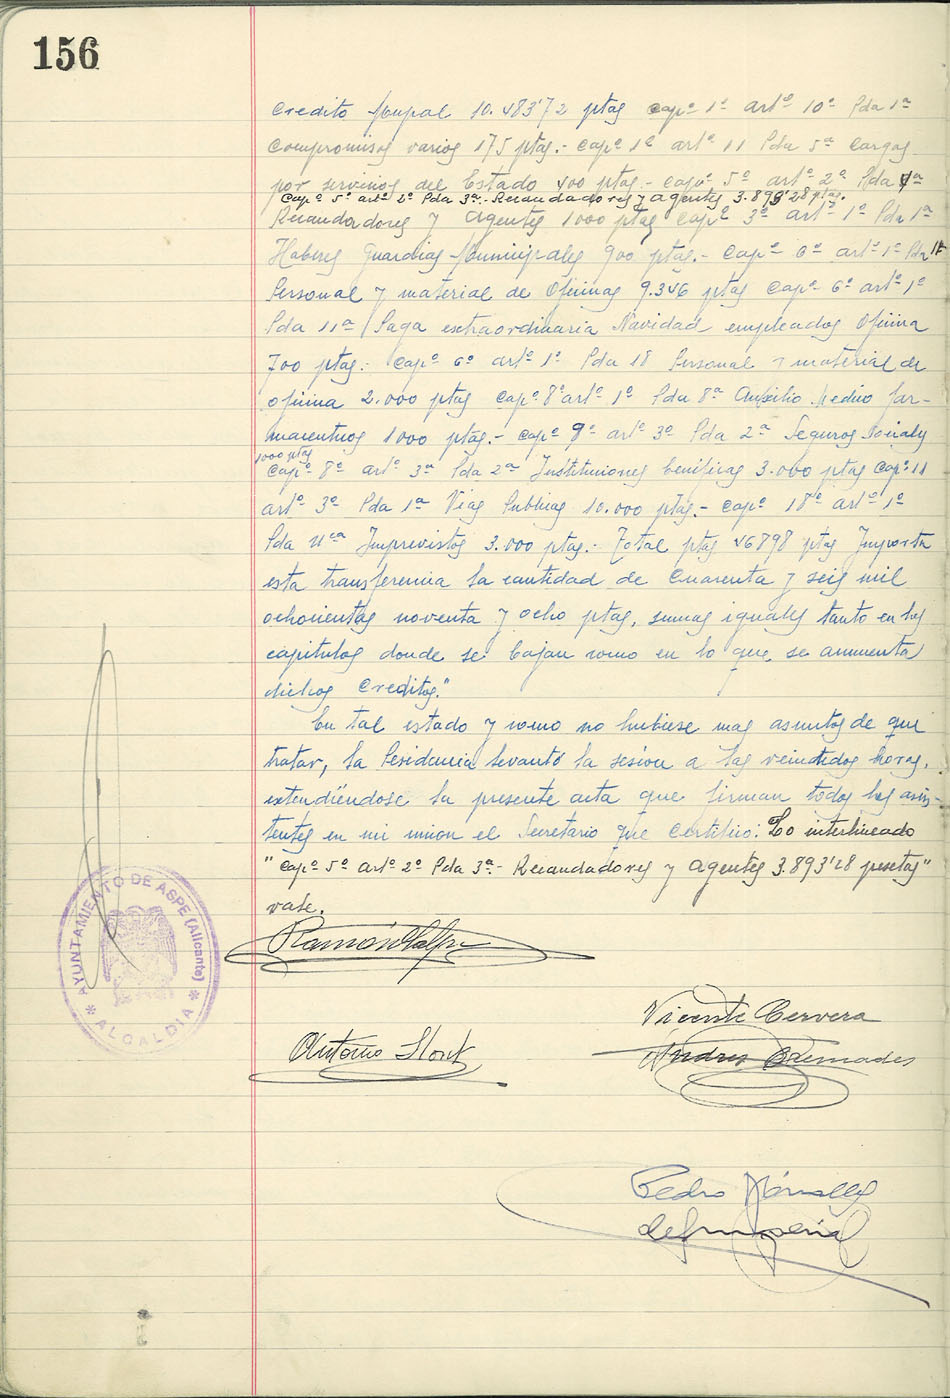 156
Credito Mupal 10.483'72 ptas capº 1º artº 10º Pda 1ª
Compromisos varios 175 ptas.- capº 1º artº 11 Pda 5ª Cargas
por servicios del Estado 400 ptas.- capº 5º artº 2º Pda 4ª
Capº 5º artº 2º Pda 3ª.- Recaudadores y agentes 3.893'28 ptas.
Recaudadores y Agentes 1000 ptas capº 3º artº 1º Pda 1ª
Haberes Guardias Municipales 900 ptas.- capº 6º artº 1º Pda 1ª
Personal y material de oficinas 9.346 ptas capº 6º artº 1º
Pda 11ª Paga extraordinaria Navidad empleados Oficina
700 ptas.- capº 6º artº 1º Pda 18 Personal y material de
oficina 2.000 ptas capº 8º artº 1º Pda 8ª Auxilio Medico far-
maceuticos 1000 ptas.- capº 8º artº 3º Pda 2ª Seguros Sociales
1000 ptas
capº 8º artº 3º Pda 2ª Instituciones beneficas 3.000 ptas capº 11
artº 3º Pda 1ª Vias Publicas 10.000 ptas.- capº 18º artº 1º
Pda uca Imprevistos 3.000 ptas.- Total ptas 46898 ptas Importa
esta transferencia la cantidad de cuarenta y seis mil
ochocientas noventa y ocho ptas, sumas iguales tanto en los
capitulos donde se bajan como en lo que se aumenta
dichos creditos."
En tal estado y como no hubiese mas asuntos de que
tratar, la Presidencia levantó la sesión a las veintidos horas,
extendiéndose la presente acta que firman todos los asis-
tentes en mi union el Secretario que certifico: Lo interlineado
"Capº 5º artº 2º Pda 3ª.- Recaudadores y agentes 3.893'28 pesetas"
vale.
AYUNTAMIENTO DE ASPE (Alicante)
* ALCALDIA *
Ramón
Vicente Cervera
Antonio
Andres Cremades
Pedro